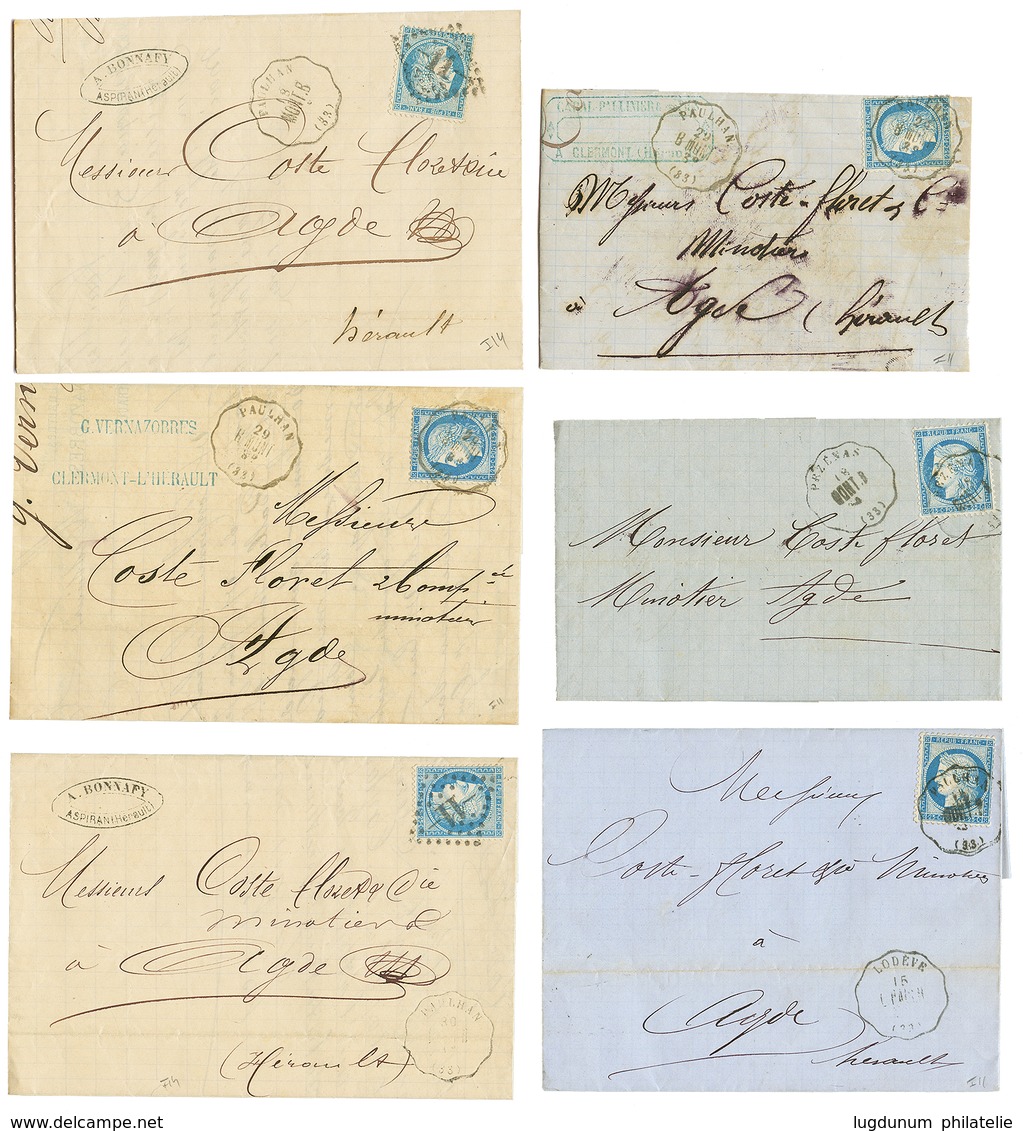 A. BONNAFY
ASPIRAN (Hérault)
PAULHAN
MONT.B
(33)
Messieurs Coste floret & Cie
à Agde
hérault
I14
A CLERMONT (Hérault)
PAULHAN
29
(33)
Messieurs Coste-floret & Cie
Minotiers
à Agde (hérault
I11
G. VERNAZOBRES
CLERMONT-L'HERAULT
PAULHAN
29
(33)
REPUB FRANC
Messieurs
Coste Floret & Comp ie
minotiers
Agde
I11
PÉZÉNAN
18
MONT.B
(33)
REPUB FRANC
25 C POSTES 25 C
Monsieur Coste floret
Minotier Agde
A. BONNAFY
ASPIRAN (Hérault)
Messieurs Coste floret & Cie
minotiers
à Agde
PAULHAN
(33)
(Hérault)
I14
REPUB FRANC
MONT.B
(33)
Messieurs
Coste-floret & Cie Minotiers
à
Agde
hérault
LODÈVE
15
(33)
I11
www.delcampe.net
lugdunum philatelie